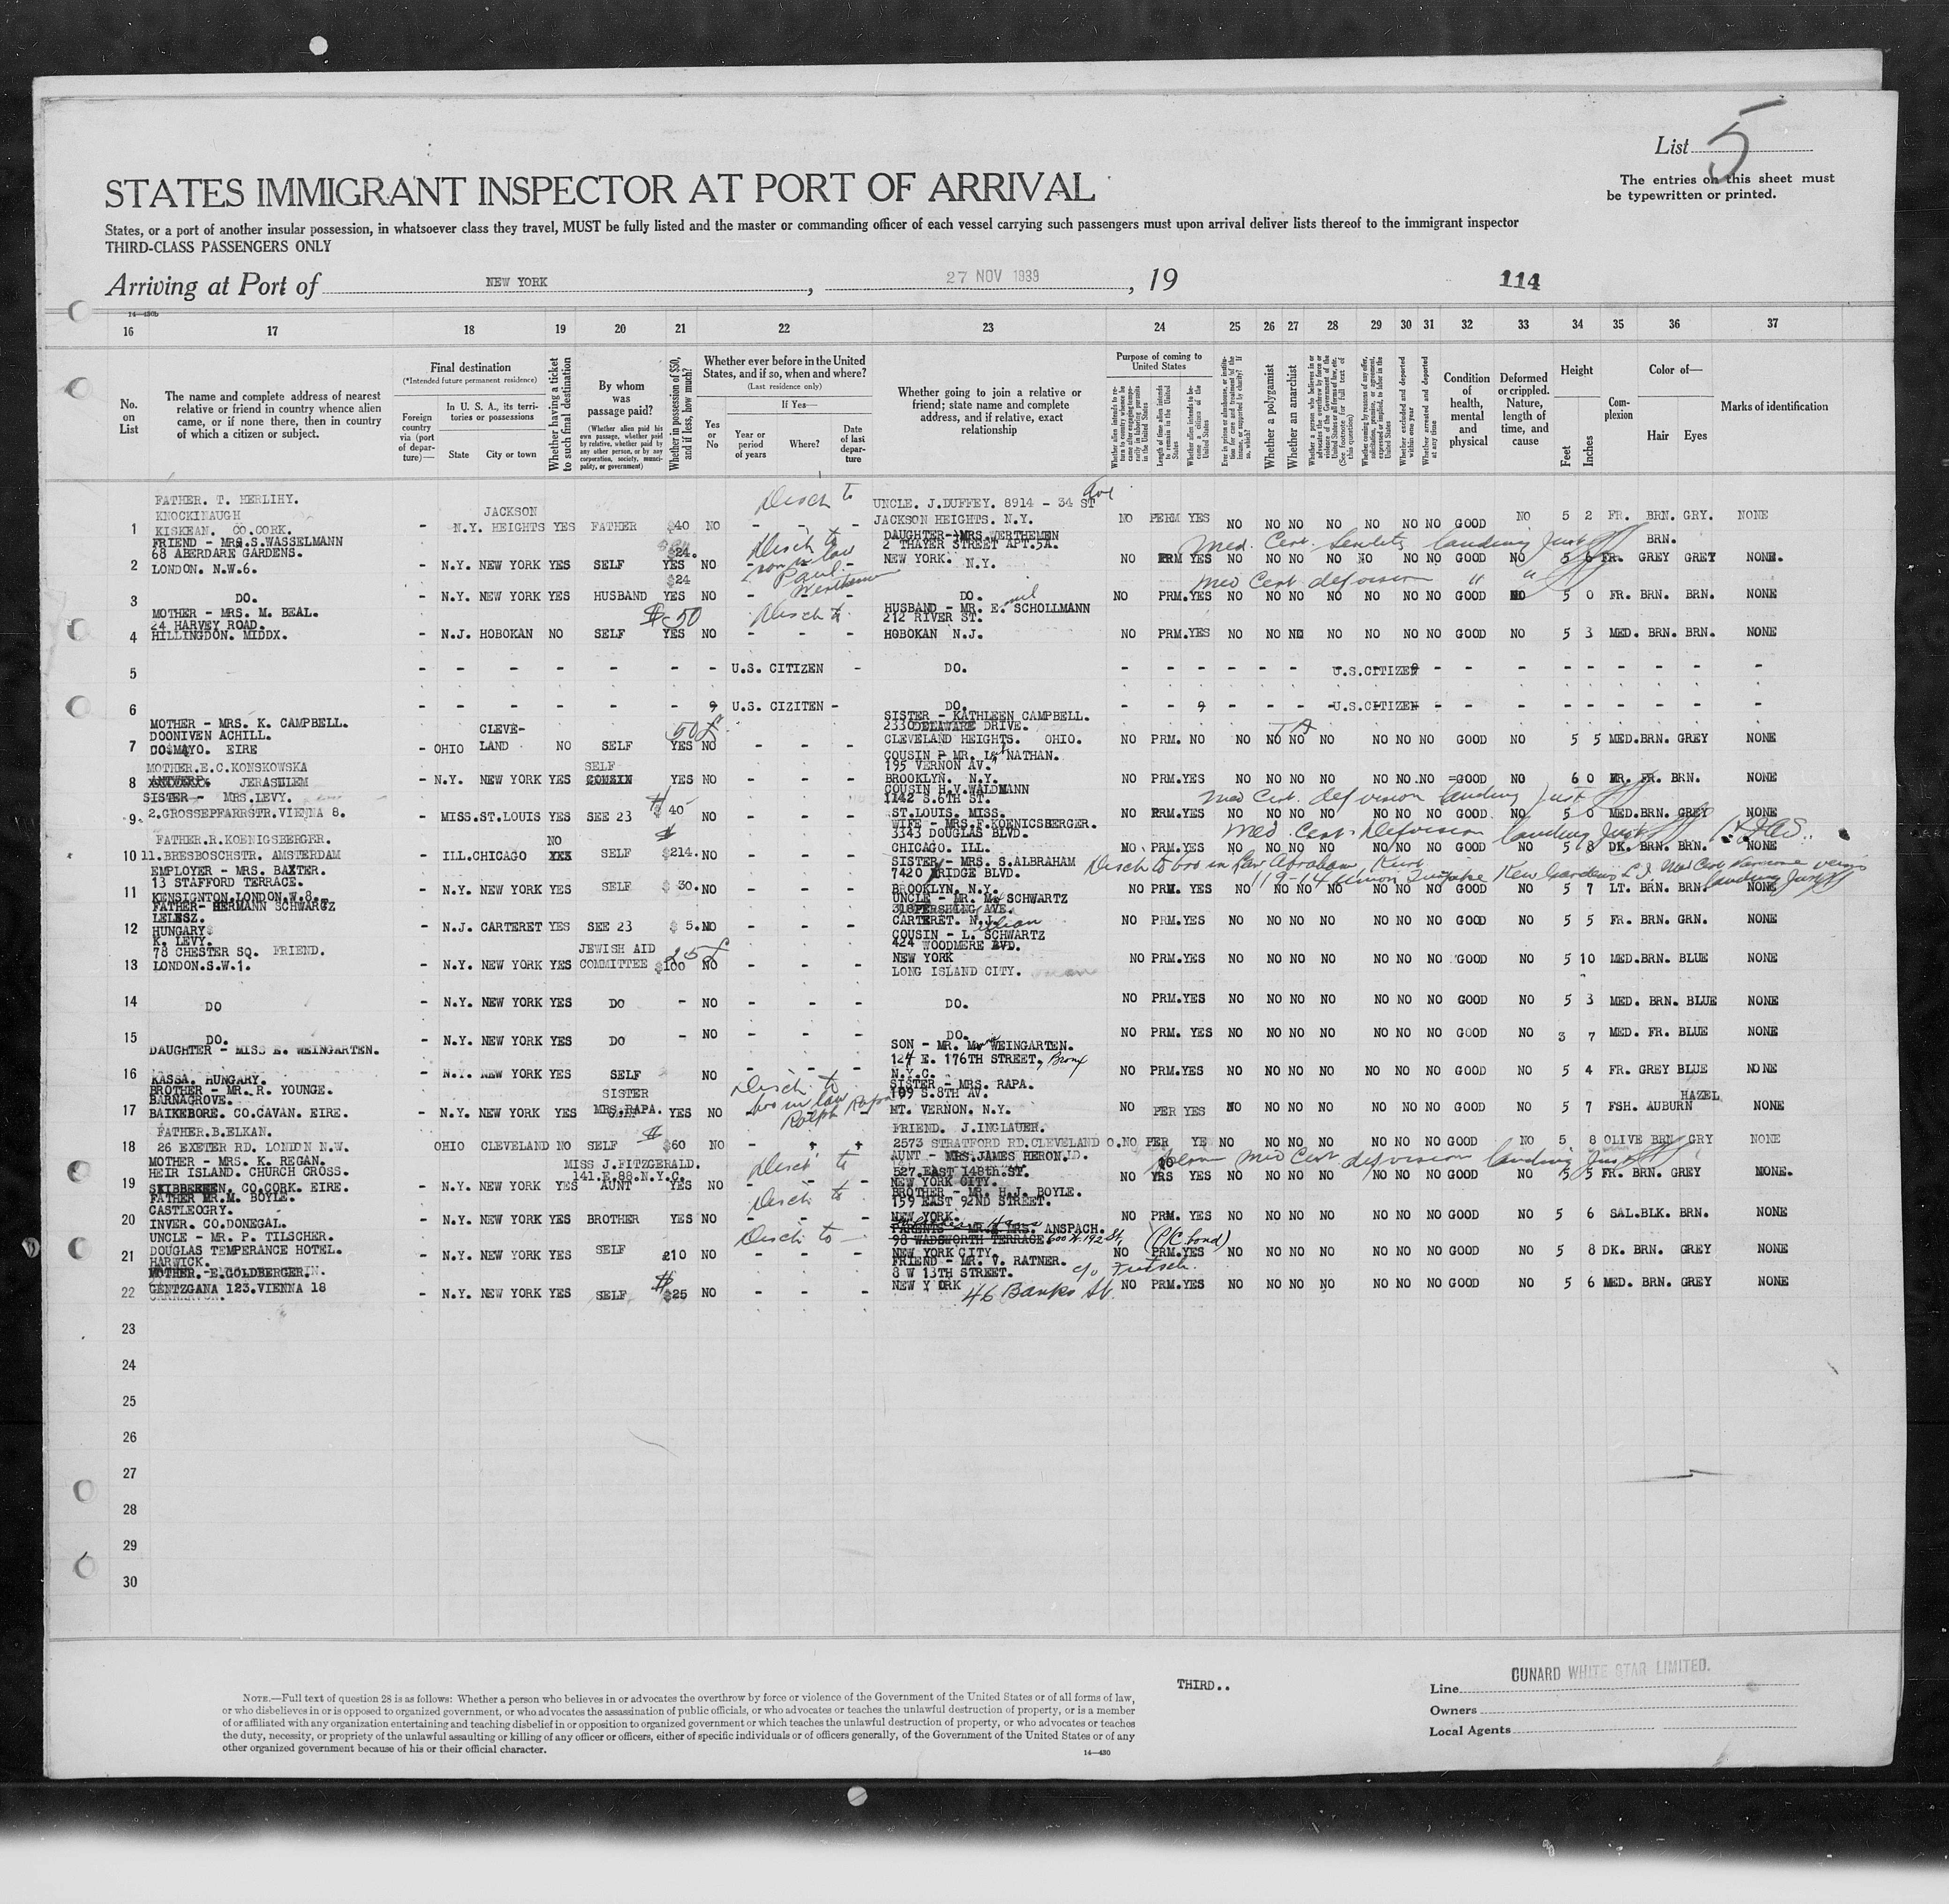 List 5
The entries on this sheet must
be typewritten or printed.
STATES IMMIGRANT INSPECTOR AT PORT OF ARRIVAL
States, or a port of another insular possession, in whatsoever class they travel, MUST be fully listed and the master or commanding officer of each vessel carrying such passengers must upon arrival deliver lists thereof to the immigrant inspector
THIRD-CLASS PASSENGERS ONLY
Arriving at Port of NEW YORK, 27 NOV 1939, 19
114
14—430b
16 17 18 19 20 21 22 23 24 25 26 27 28 29 30 31 32 33 34 35 36 37
No. on List
The name and complete address of nearest relative or friend in country whence alien came, or if none there, then in country of which a citizen or subject.
Final destination
(*Intended future permanent residence)
Foreign country via (port of departure)—
In U. S. A., its territories or possessions
State City or town
Whether having a ticket to such final destination
By whom was passage paid?
(Whether alien paid his own passage, whether paid by relative, whether paid by any other person, or by any corporation, society, municipality, or government)
Whether in possession of $50, and if less, how much?
Whether ever before in the United States, and if so, when and where?
(Last residence only)
Yes or No
If Yes—
Year or period of years Where? Date of last departure
Whether going to join a relative or friend; state name and complete address, and if relative, exact relationship
Purpose of coming to United States
Length of time alien intends to remain in the United States
Whether alien intends to become a citizen of the United States
Whether a polygamist
Whether an anarchist
Whether arrested and deported at any time
Condition of health, mental and physical
Deformed or crippled. Nature, length of time, and cause
Height
Feet Inches
Complexion
Color of—
Hair Eyes
Marks of identification
FATHER. T. HERLIHY.
KNOCKINAUGH
KISKEAN. CO.CORK.
1 - N.Y. JACKSON HEIGHTS YES FATHER $40 NO - - - Disch to
UNCLE. J.DUFFEY. 8914 - 34 ST Ave
JACKSON HEIGHTS. N.Y.
NO PERM YES NO NO NO NO NO NO NO GOOD NO 5 2 FR. BRN. GRY. NONE
FRIEND - MRS.S.WASSELMANN
68 ABERDARE GARDENS.
LONDON. N.W.6.
2 - N.Y. NEW YORK YES SELF $24. YES NO
Disch to son in law Paul Wertheimer
DAUGHTER - MRS WERTHEMEN
2 THAYER STREET APT.5A.
NEW YORK. N.Y.
NO PRM YES NO NO NO NO NO NO NO GOOD NO 5 6 FR. GREY GREY NONE.
Med. Cert. landing just
BRN.
3 DO. - N.Y. NEW YORK YES HUSBAND $24 YES NO - - - DO. NO PRM.YES NO NO NO NO NO NO NO GOOD NO 5 0 FR. BRN. BRN. NONE
Med Cert def vision " "
MOTHER - MRS. M. BEAL.
24 HARVEY ROAD.
HILLINGDON. MIDDX.
4 - N.J. HOBOKAN NO SELF $50 YES NO - - - Disch to
HUSBAND - MR. E. SCHOLLMANN
212 RIVER ST.
HOBOKAN N.J.
NO PRM.YES NO NO NO NO NO NO NO GOOD NO 5 3 MED. BRN. BRN. NONE
5 - - - - - - - U.S. CITIZEN - DO. - - - - - - U.S.CITIZEN - - - - - - - -
6 U.S. CIZITEN - DO. - - - - - U.S.CITIZEN - - - - - - - -
MOTHER - MRS. K. CAMPBELL.
DOONIVEN ACHILL.
CO.MAYO. EIRE
7 - OHIO CLEVE-LAND NO SELF 50£ YES NO - - -
SISTER - KATHLEEN CAMPBELL.
2330 DELAWARE DRIVE.
CLEVELAND HEIGHTS. OHIO.
NO PRM. NO NO NO NO NO NO NO NO GOOD NO 5 5 MED.BRN. GREY NONE
MOTHER.E.C.KONSKOWSKA
ANTWERP. JERASULEM
8 - N.Y. NEW YORK YES SELF COUSIN YES NO - - -
COUSIN - MR. NATHAN.
195 VERNON AV.
BROOKLYN. N.Y.
NO PRM.YES NO NO NO NO NO NO NO GOOD NO 6 0 FR. FR. BRN. NONE
SISTER - MRS.LEVY.
2.GROSSEPFARRSTR.VIENNA 8.
9 - MISS.ST.LOUIS YES SEE 23 $40 NO - - -
COUSIN H.V.WALDMANN
1142 S.6TH ST.
ST.LOUIS. MISS.
NO PRM.YES NO NO NO NO NO NO NO GOOD NO 5 0 MED.BRN. GREY NONE
Med Cert. def vision landing just
FATHER.R.KOENIGSBERGER.
11.BRESBOSCHSTR. AMSTERDAM
10 - ILL.CHICAGO NO YES SELF $214. NO - - -
WIFE - MRS.F.KOENICSBERGER.
3343 DOUGLAS BLVD.
CHICAGO. ILL.
NO PRM.YES NO NO NO NO NO NO NO GOOD NO 5 8 DK. BRN. BRN. NONE
Med. Cert. Def vision landing just
EMPLOYER - MRS. BAXTER.
13 STAFFORD TERRACE.
KENSIGNTON.LONDON.W.8.
11 - N.Y. NEW YORK YES SELF $30. NO - - -
SISTER - MRS. S.ALBRAHAM
7420 RIDGE BLVD.
BROOKLYN. N.Y.
Disch to bro in law Abraham, Kurt
119-14 Union Turnpike Kew Gardens L.I. Med Cert
landing just
NO PRM. YES NO NO NO NO NO NO NO GOOD NO 5 7 LT. BRN. BRN. NONE
FATHER- HERMANN SCHWARTZ
LELESZ.
HUNGARY
12 - N.J. CARTERET YES SEE 23 $5. NO - - -
UNCLE - MR. M. SCHWARTZ
PERSHING AVE.
CARTERET. N.J.
NO PRM.YES NO NO NO NO NO NO NO GOOD NO 5 5 FR. BRN. GRN. NONE
K. LEVY.
78 CHESTER SQ. FRIEND.
LONDON.S.W.1.
13 - N.Y. NEW YORK YES JEWISH AID COMMITTEE $100 25£ NO - - -
COUSIN - L. SCHWARTZ
424 WOODMERE BVD.
NEW YORK
LONG ISLAND CITY.
NO PRM.YES NO NO NO NO NO NO NO GOOD NO 5 10 MED.BRN. BLUE NONE
14 DO - N.Y. NEW YORK YES DO - NO - - - DO. NO PRM.YES NO NO NO NO NO NO NO GOOD NO 5 3 MED. BRN. BLUE NONE
15 DO. - N.Y. NEW YORK YES DO - NO - - - DO. NO PRM. YES NO NO NO NO NO NO NO GOOD NO 3 7 MED. FR. BLUE NONE
DAUGHTER - MISS E. WEINGARTEN.
KASSA. HUNGARY.
16 - N.Y. NEW YORK YES SELF NO - - -
SON - MR. WEINGARTEN.
124 E. 176TH STREET, Bronx
N.Y.C.
NO PRM.YES NO NO NO NO NO NO NO GOOD NO 5 4 FR. GREY BLUE NONE
BROTHER - MR. R. YOUNGE.
BARNAGROVE.
BAIKEBORE. CO.CAVAN. EIRE.
17 - N.Y. NEW YORK YES SISTER MRS.RAPA. YES NO
Disch to bro in law Ralph Rapa
SISTER - MRS. RAPA.
109 S.8TH AV.
MT. VERNON. N.Y.
NO PER YES NO NO NO NO NO NO NO GOOD NO 5 7 FSH. AUBURN HAZEL NONE
FATHER.B.ELKAN.
26 EXETER RD. LONDON N.W.
18 OHIO CLEVELAND NO SELF $60 NO - - -
FRIEND. J.INGLAUER.
2573 STRATFORD RD.CLEVELAND O.
NO PER YE NO NO NO NO NO NO NO GOOD NO 5 8 OLIVE BRN GRY NONE
MOTHER - MRS. K. REGAN.
HEIR ISLAND. CHURCH CROSS.
SKIBBEREEN. CO.CORK. EIRE.
19 - N.Y. NEW YORK YES MISS J.FITZGERALD. 141.E.88.N.Y.C. AUNT YES NO - - - Disch to
AUNT - MRS.JAMES HERON.
527.EAST 148th.ST.
NEW YORK CITY.
Med Cert def vision landing just
NO YRS YES NO NO NO NO NO NO NO GOOD NO 5 5 FR. BRN. GREY NONE.
FATHER MR.M. BOYLE.
CASTLEOGRY.
INVER. CO.DONEGAL.
20 - N.Y. NEW YORK YES BROTHER YES NO - - - Disch to
BROTHER - MR. H.J. BOYLE.
159 EAST 92ND STREET.
NEW YORK.
NO PRM. YES NO NO NO NO NO NO NO GOOD NO 5 6 SAL.BLK. BRN. NONE
UNCLE - MR. P. TILSCHER.
DOUGLAS TEMPERANCE HOTEL.
HARWICK.
21 - N.Y. NEW YORK YES SELF £10 NO - - - Disch to
PARENTS - MR. & MRS. ANSPACH.
98 WADSWORTH TERRACE 600 W. 192 St,
NEW YORK CITY.
(P/C bond)
NO PRM.YES NO NO NO NO NO NO NO GOOD NO 5 8 DK. BRN. GREY NONE
MOTHER. E.GOLDBERGER
GENTZGANA 123.VIENNA 18
22 - N.Y. NEW YORK YES SELF $25 NO - - -
FRIEND - MR. V. RATNER.
8 W 13TH STREET.
NEW YORK
46 Banks St.
NO PRM.YES NO NO NO NO NO NO NO GOOD NO 5 6 MED. BRN. GREY NONE
23
24
25
26
27
28
29
30
NOTE.—Full text of question 28 is as follows: Whether a person who believes in or advocates the overthrow by force or violence of the Government of the United States or of all forms of law,
or who disbelieves in or is opposed to organized government, or who advocates the assassination of public officials, or who advocates or teaches the unlawful destruction of property, or is a member
of or affiliated with any organization entertaining and teaching disbelief in or opposition to organized government or which teaches the unlawful destruction of property, or who advocates or teaches
the duty, necessity, or propriety of the unlawful assaulting or killing of any officer or officers, either of specific individuals or of officers generally, of the Government of the United States or of any
other organized government because of his or their official character.
14—430
THIRD..
Line CUNARD WHITE STAR LIMITED.
Owners
Local Agents